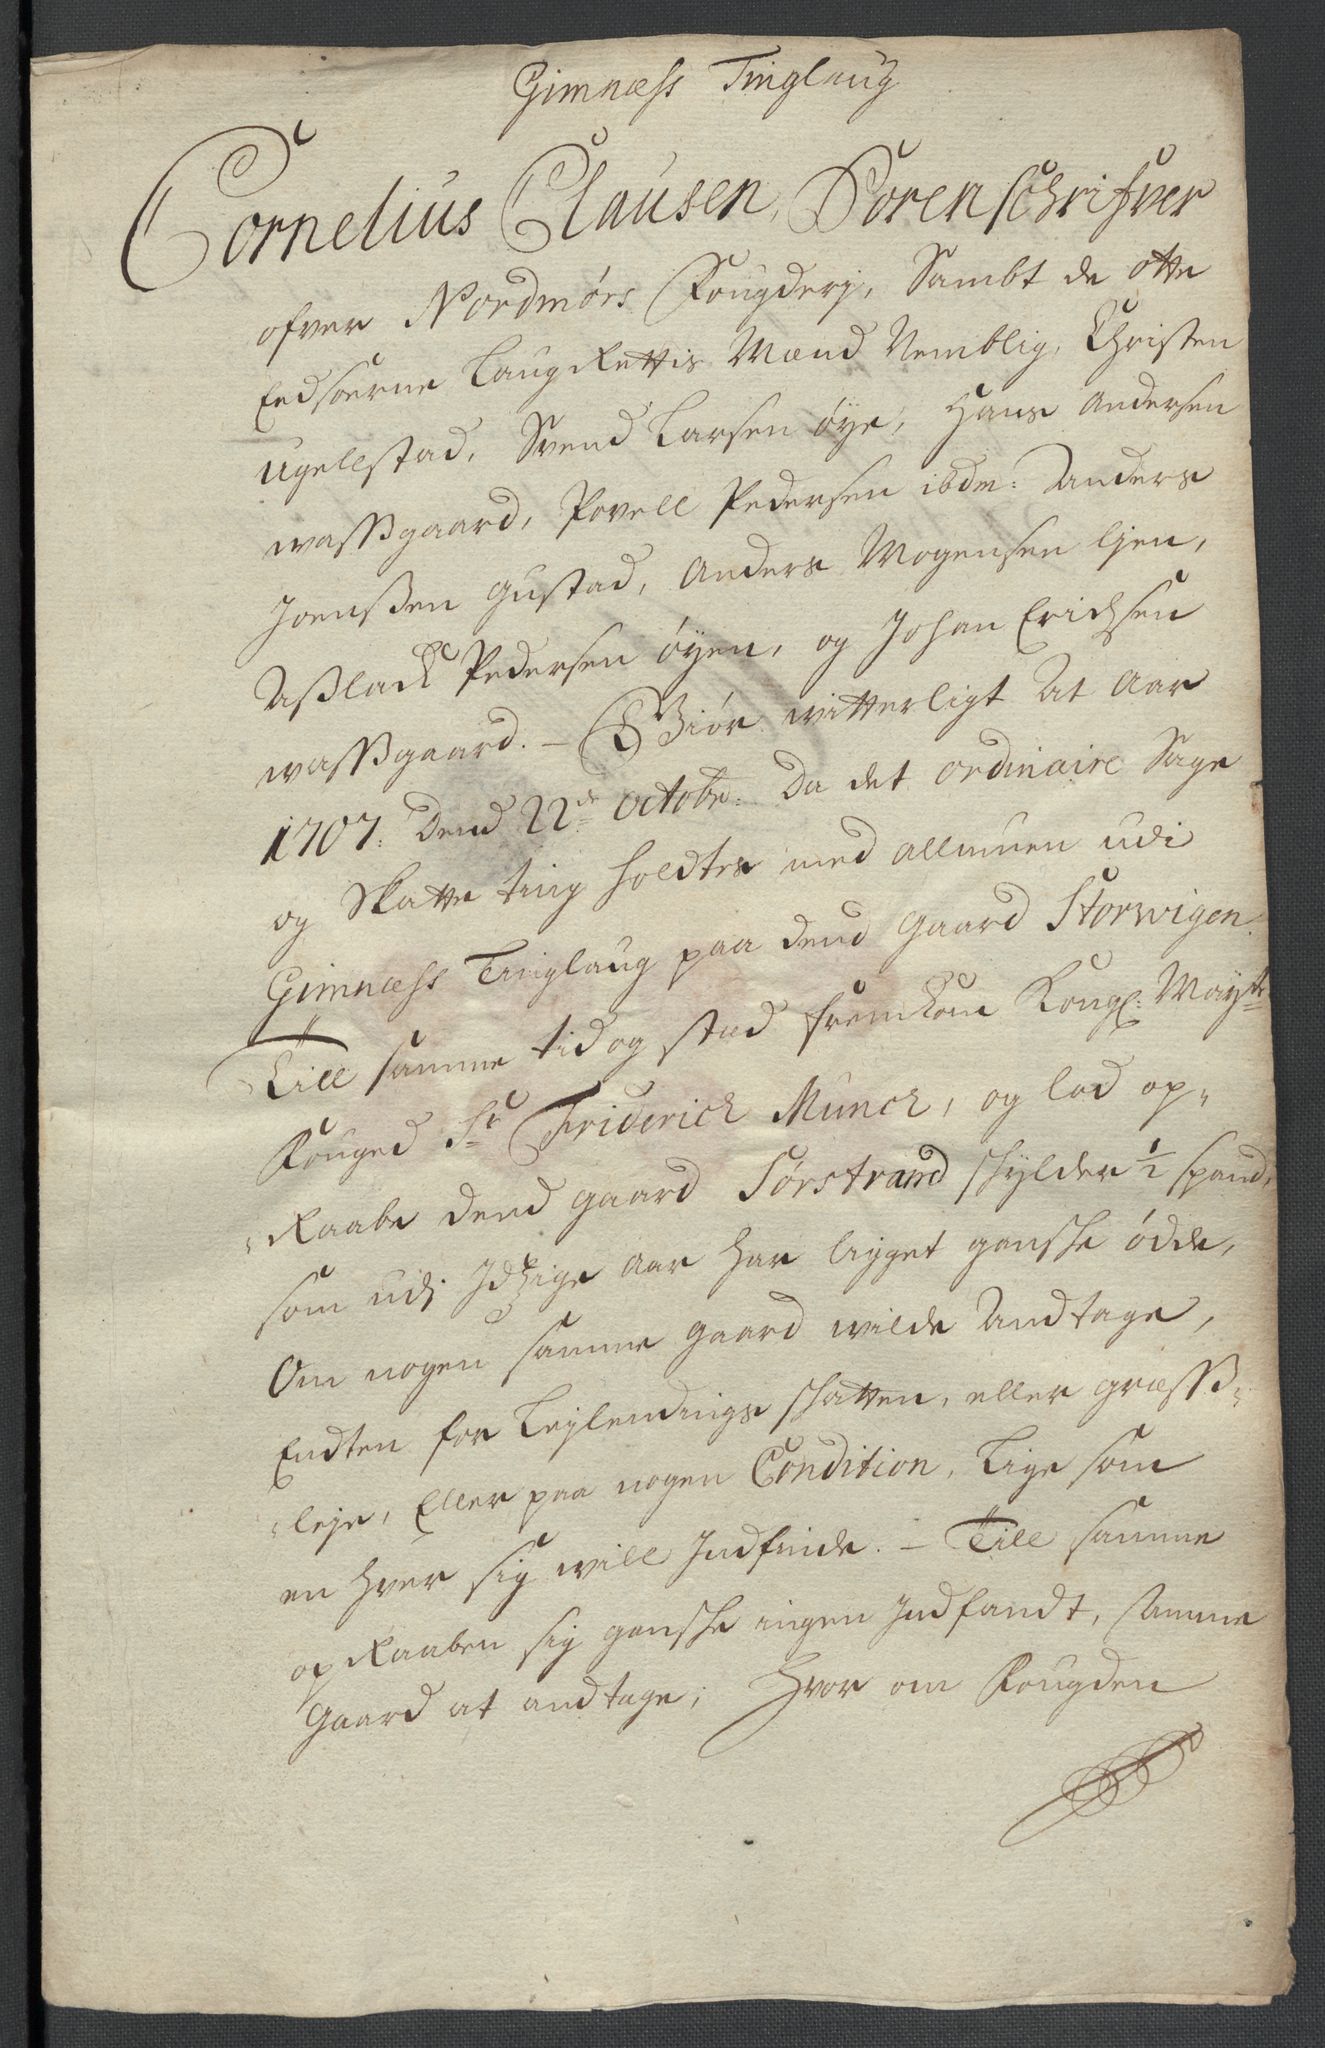 Gimnæss Tinglaug
Cornelius Clausen, Sorenschrifver
ofver Nordmørs Fougderj, Sambt de otte
Eedsoerne Laug Rettis Mænd Nemblig, Christen
Ugellstad, Svend Larsen øye, Hans Andersen
wassgaard, Povell Pedersen ibdm: Anders
Joenßen Gustad, Anders Mogensen lien,
Aßlack Pedersen øyen, og Johan Erichsen
wassgaard. – Giør witterligt At Aar
1707. Dend 22de octobr: Da det ordinaire Sage
og Skatte ting holdtes med allmuen udi
Gimnæss Tinglaug paa dend Gaard Storwigen.
Till samme tid og stæd fremkom Kongl: Mayts
Fouged Sr Friderich Munch, og lod op-
-Raabe dend gaard Sørstrand schylder ½ spand,
som udj Idzige Aar har ligget ganske ødde,
Om nogen samme gaard wilde Andtage,
Endten for Leylendings skatten, eller græss-
-leje, Eller paa nogen Condition, Lige som
en hver sig will Indfinde. – Till samme
op Raaben sig ganske ingen Indfandt, samme
Gaard at andtage; Hvor om Fougden